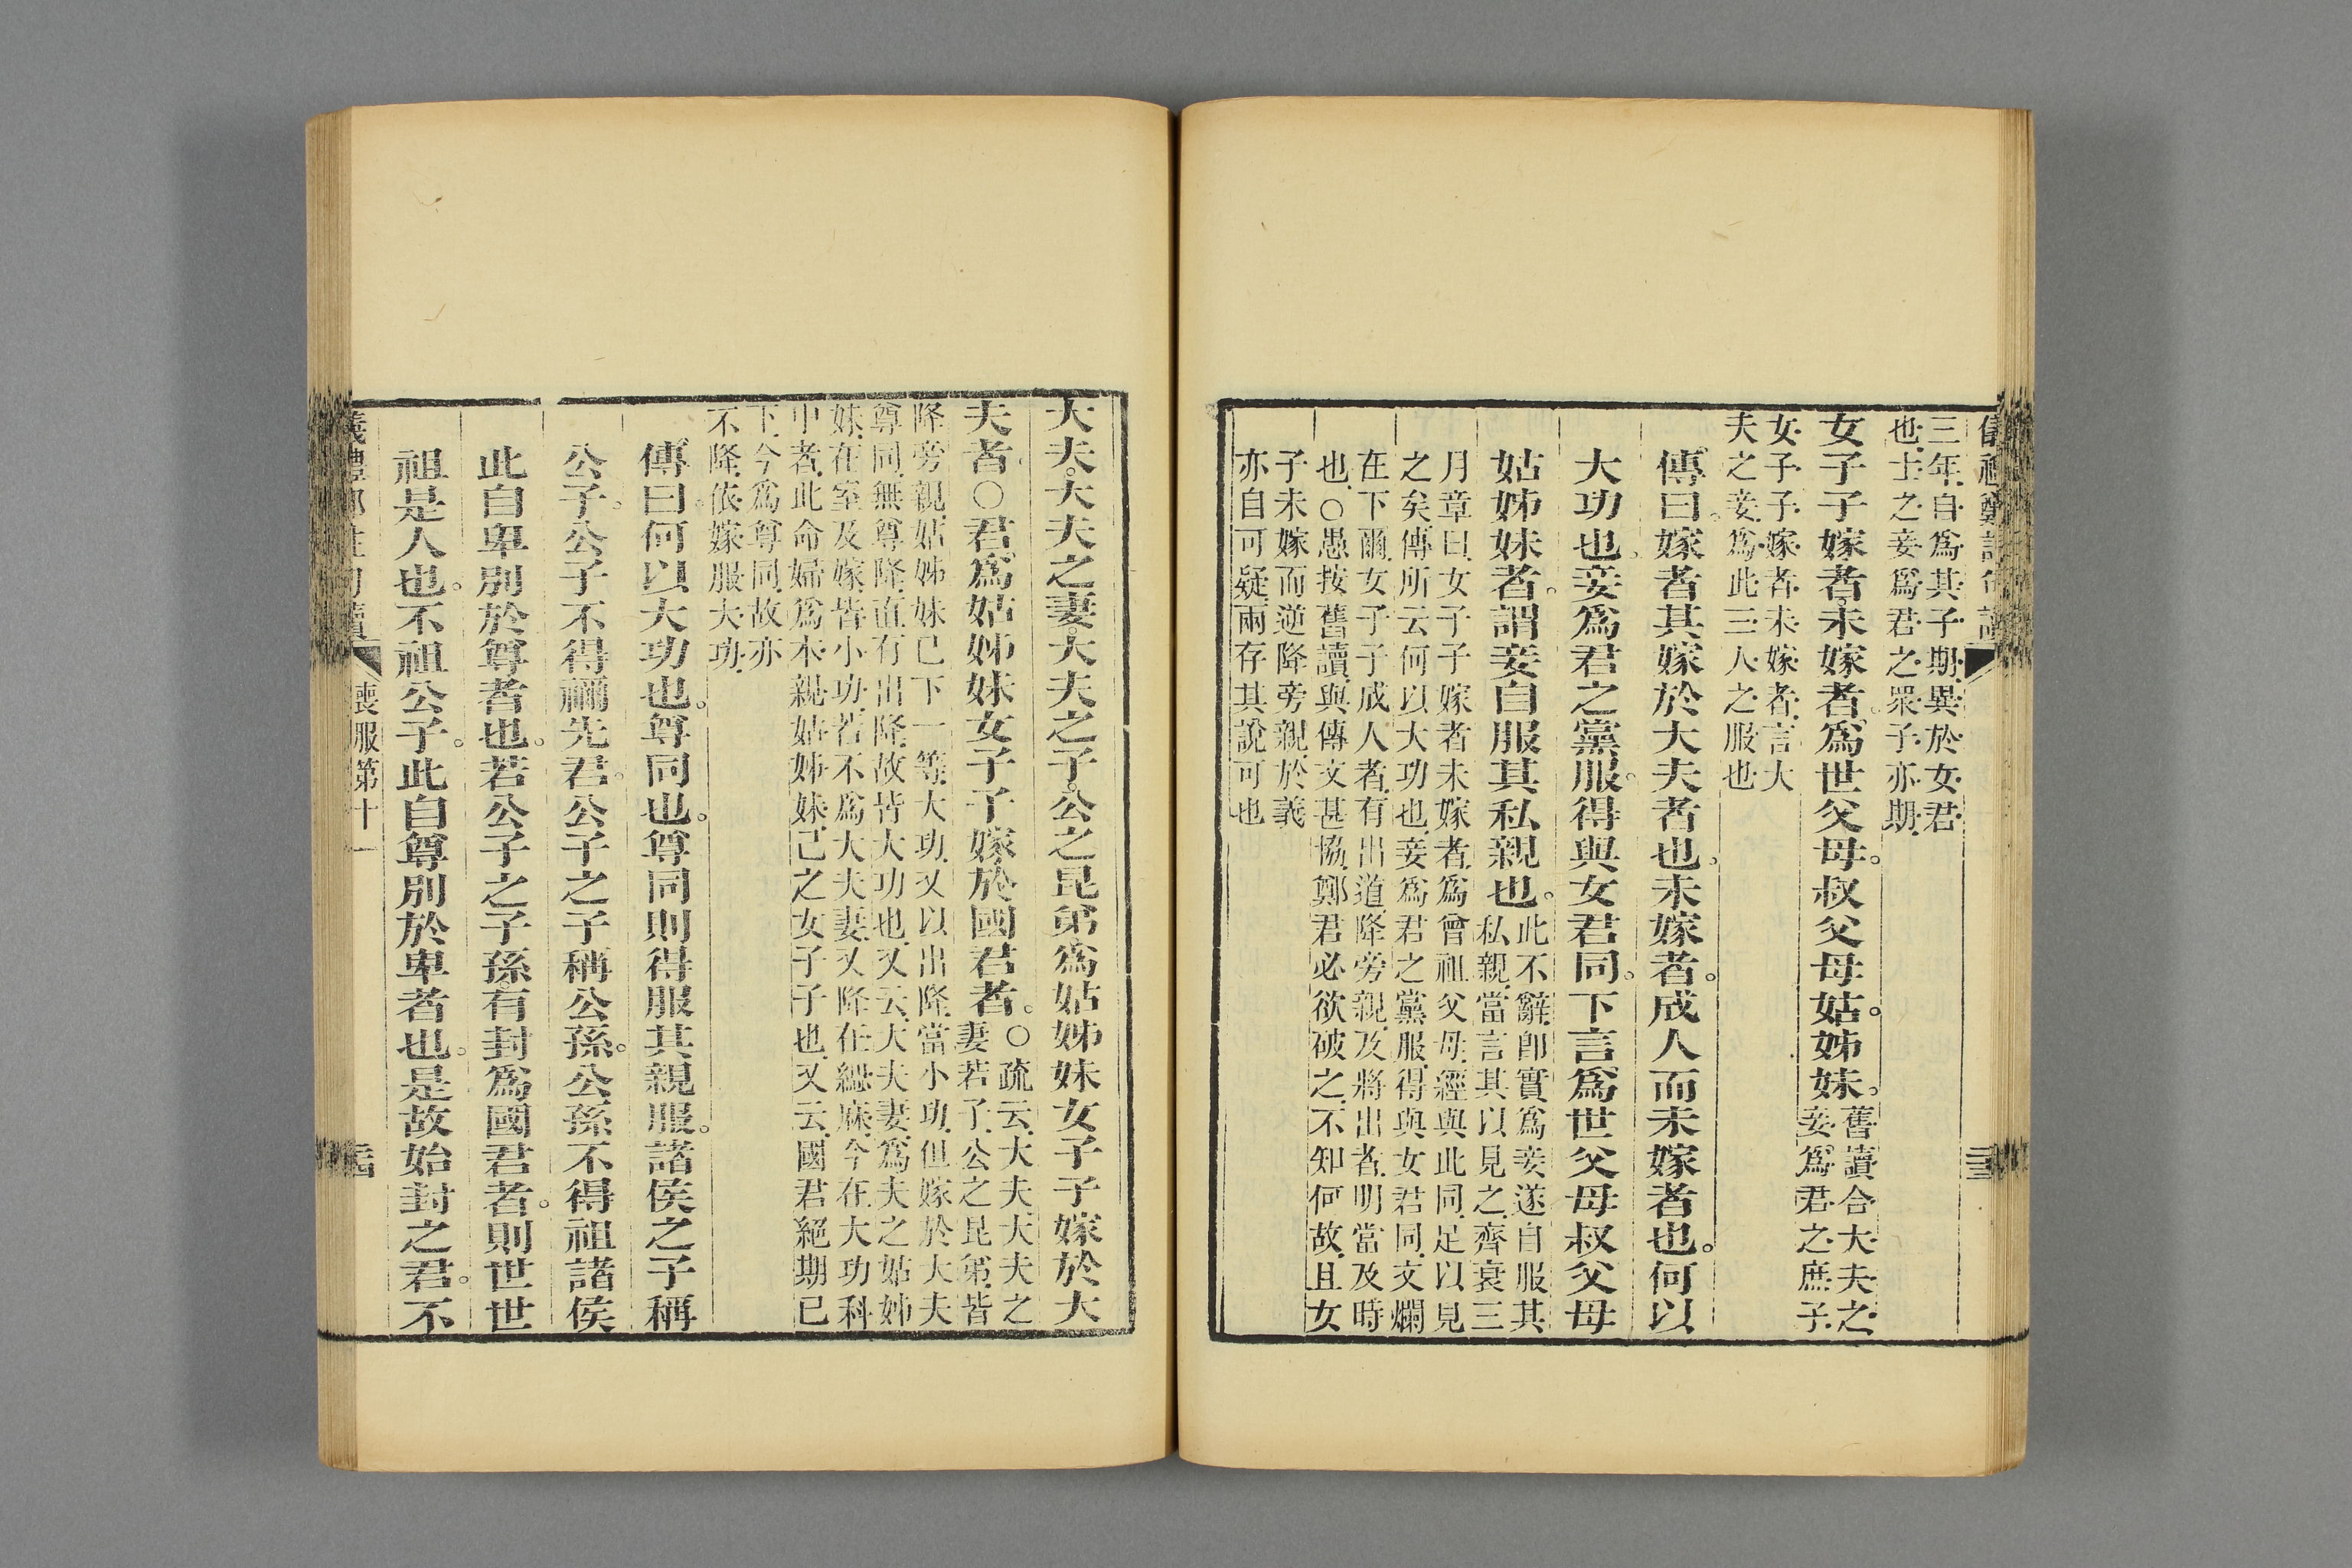 儀禮鄭註句讀
三年自爲其子期異於女君
也士之妾爲君之眾子亦期
女子子嫁者未嫁者爲世父母叔父母姑姊妹
舊讀合大夫之
妾爲君之庶子
女子子嫁者未嫁者言大
夫之妾爲此三人之服也
傳曰嫁者其嫁於大夫者也未嫁者成人而未嫁者也何以
大功也妾爲君之黨服得與女君同下言爲世父母叔父母
姑姊妹者謂妾自服其私親也
此不辭卽實爲妾遂自服其
私親當言其以見之齊衰三
月章曰女子子嫁者未嫁者爲曾祖父母經與此同足以見
之矣傳所云何以大功也妾爲君之黨服得與女君同文爛
在下爾女子子成人者有出道降旁親及將出者明當及時
也○愚按舊讀與傳文甚協鄭君必欲破之不知何故且女
子未嫁而逆降旁親於義
亦自可疑兩存其說可也
大夫大夫之妻大夫之子公之昆弟爲姑姊妹女子子嫁於大
夫者○君爲姑姊妹女子子嫁於國君者
○疏云大夫大夫之
妻若子公之昆弟皆
降旁親姑姊妹已下一等大功又以出降當小功但嫁於大夫
尊同無尊降直有出降故皆大功也又云大夫妻爲夫之姑姊
妹在室及嫁皆小功若不爲大夫妻又降在緦麻今在大功科
中者此命婦爲本親姑姊妹己之女子子也又云國君絕期已
下今爲尊同故亦
不降依嫁服大功
傳曰何以大功也尊同也尊同則得服其親服諸侯之子稱
公子公子不得禰先君公子之子稱公孫公孫不得祖諸侯
此自卑別於尊者也若公子之子孫有封爲國君者則世世
祖是人也不祖公子此自尊別於卑者也是故始封之君不
儀禮鄭註句讀
喪服第十一